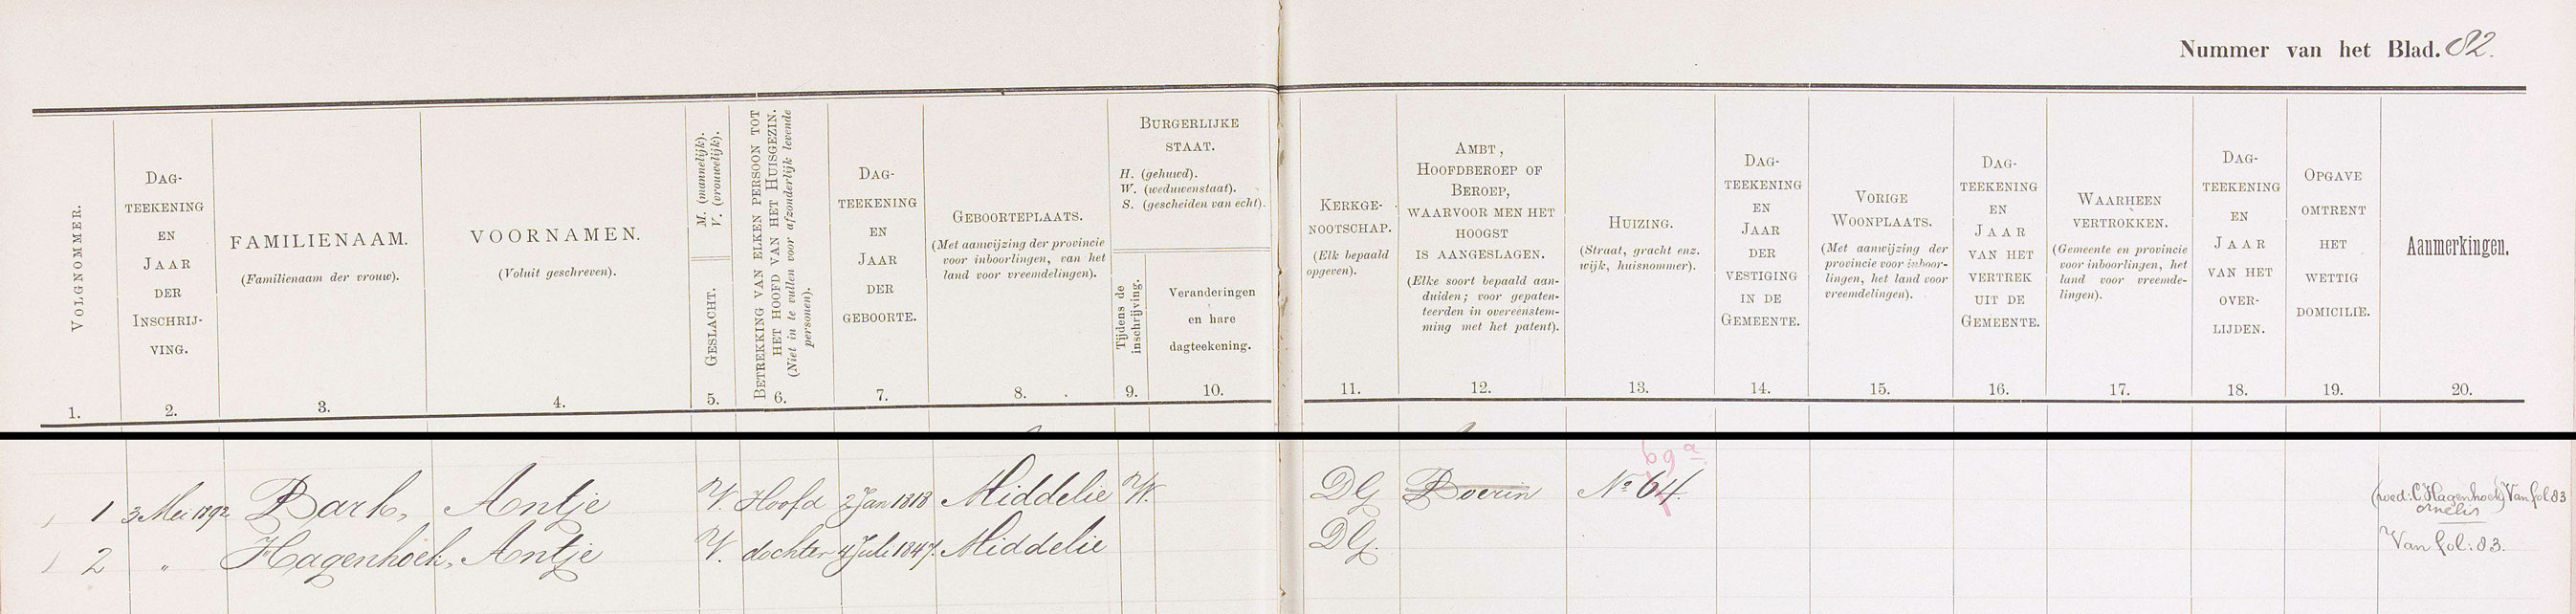 Nummer van het Blad. 82.
VOLGNOMMER.
DAG-
TEEKENING
EN
JAAR
DER
INSCHRIJ-
VING.
FAMILIENAAM.
(Familienaam der vrouw).
VOORNAMEN.
(Voluit geschreven).
M. (mannelijk).
V. (vrouwelijk).
GESLACHT.
BETREKKING VAN ELKEN PERSOON TOT
HET HOOFD VAN HET HUISGEZIN.
(Niet in te vullen voor afzonderlijk levende
personen).
DAG-
TEEKENING
EN
JAAR
DER
GEBOORTE.
GEBOORTEPLAATS.
(Met aanwijzing der provincie
voor inboorlingen, van het
land voor vreemdelingen).
BURGERLIJKE
STAAT.
H. (gehuwd).
W. (weduwenstaat).
S. (gescheiden van echt).
Tijdens de
inschrijving.
Veranderingen
en hare
dagteekening.
KERKGE-
NOOTSCHAP.
(Elk bepaald
opgeven).
AMBT,
HOOFDBEROEP OF
BEROEP,
WAARVOOR MEN HET
HOOGST
IS AANGESLAGEN.
(Elke soort bepaald aan-
duiden; voor gepaten-
teerden in overeenstem-
ming met het patent).
HUIZING.
(Straat, gracht enz.
wijk, huisnommer).
DAG-
TEEKENING
EN
JAAR
DER
VESTIGING
IN DE
GEMEENTE.
VORIGE
WOONPLAATS.
(Met aanwijzing der
provincie voor inboor-
lingen, het land voor
vreemdelingen).
DAG-
TEEKENING
EN
JAAR
VAN HET
VERTREK
UIT DE
GEMEENTE.
WAARHEEN
VERTROKKEN.
(Gemeente en provincie
voor inboorlingen, het
land voor vreemde-
lingen).
DAG-
TEEKENING
EN
JAAR
VAN HET
OVER-
LIJDEN.
OPGAVE
OMTRENT
HET
WETTIG
DOMICILIE.
Aanmerkingen.
1. 2. 3. 4. 5. 6. 7. 8. 9. 10. 11. 12. 13. 14. 15. 16. 17. 18. 19. 20.
69a
1 3 Mei 1892 Bark, Antje V. Hoofd 2 Jan 1818 Middelie W. DG Boerin No 64. (wed: C. Hagenhoek) Van fol 83
ornelis
2 " Hagenhoek, Antje V. dochter 4 Juli 1847. Middelie DG. Van fol: 83.